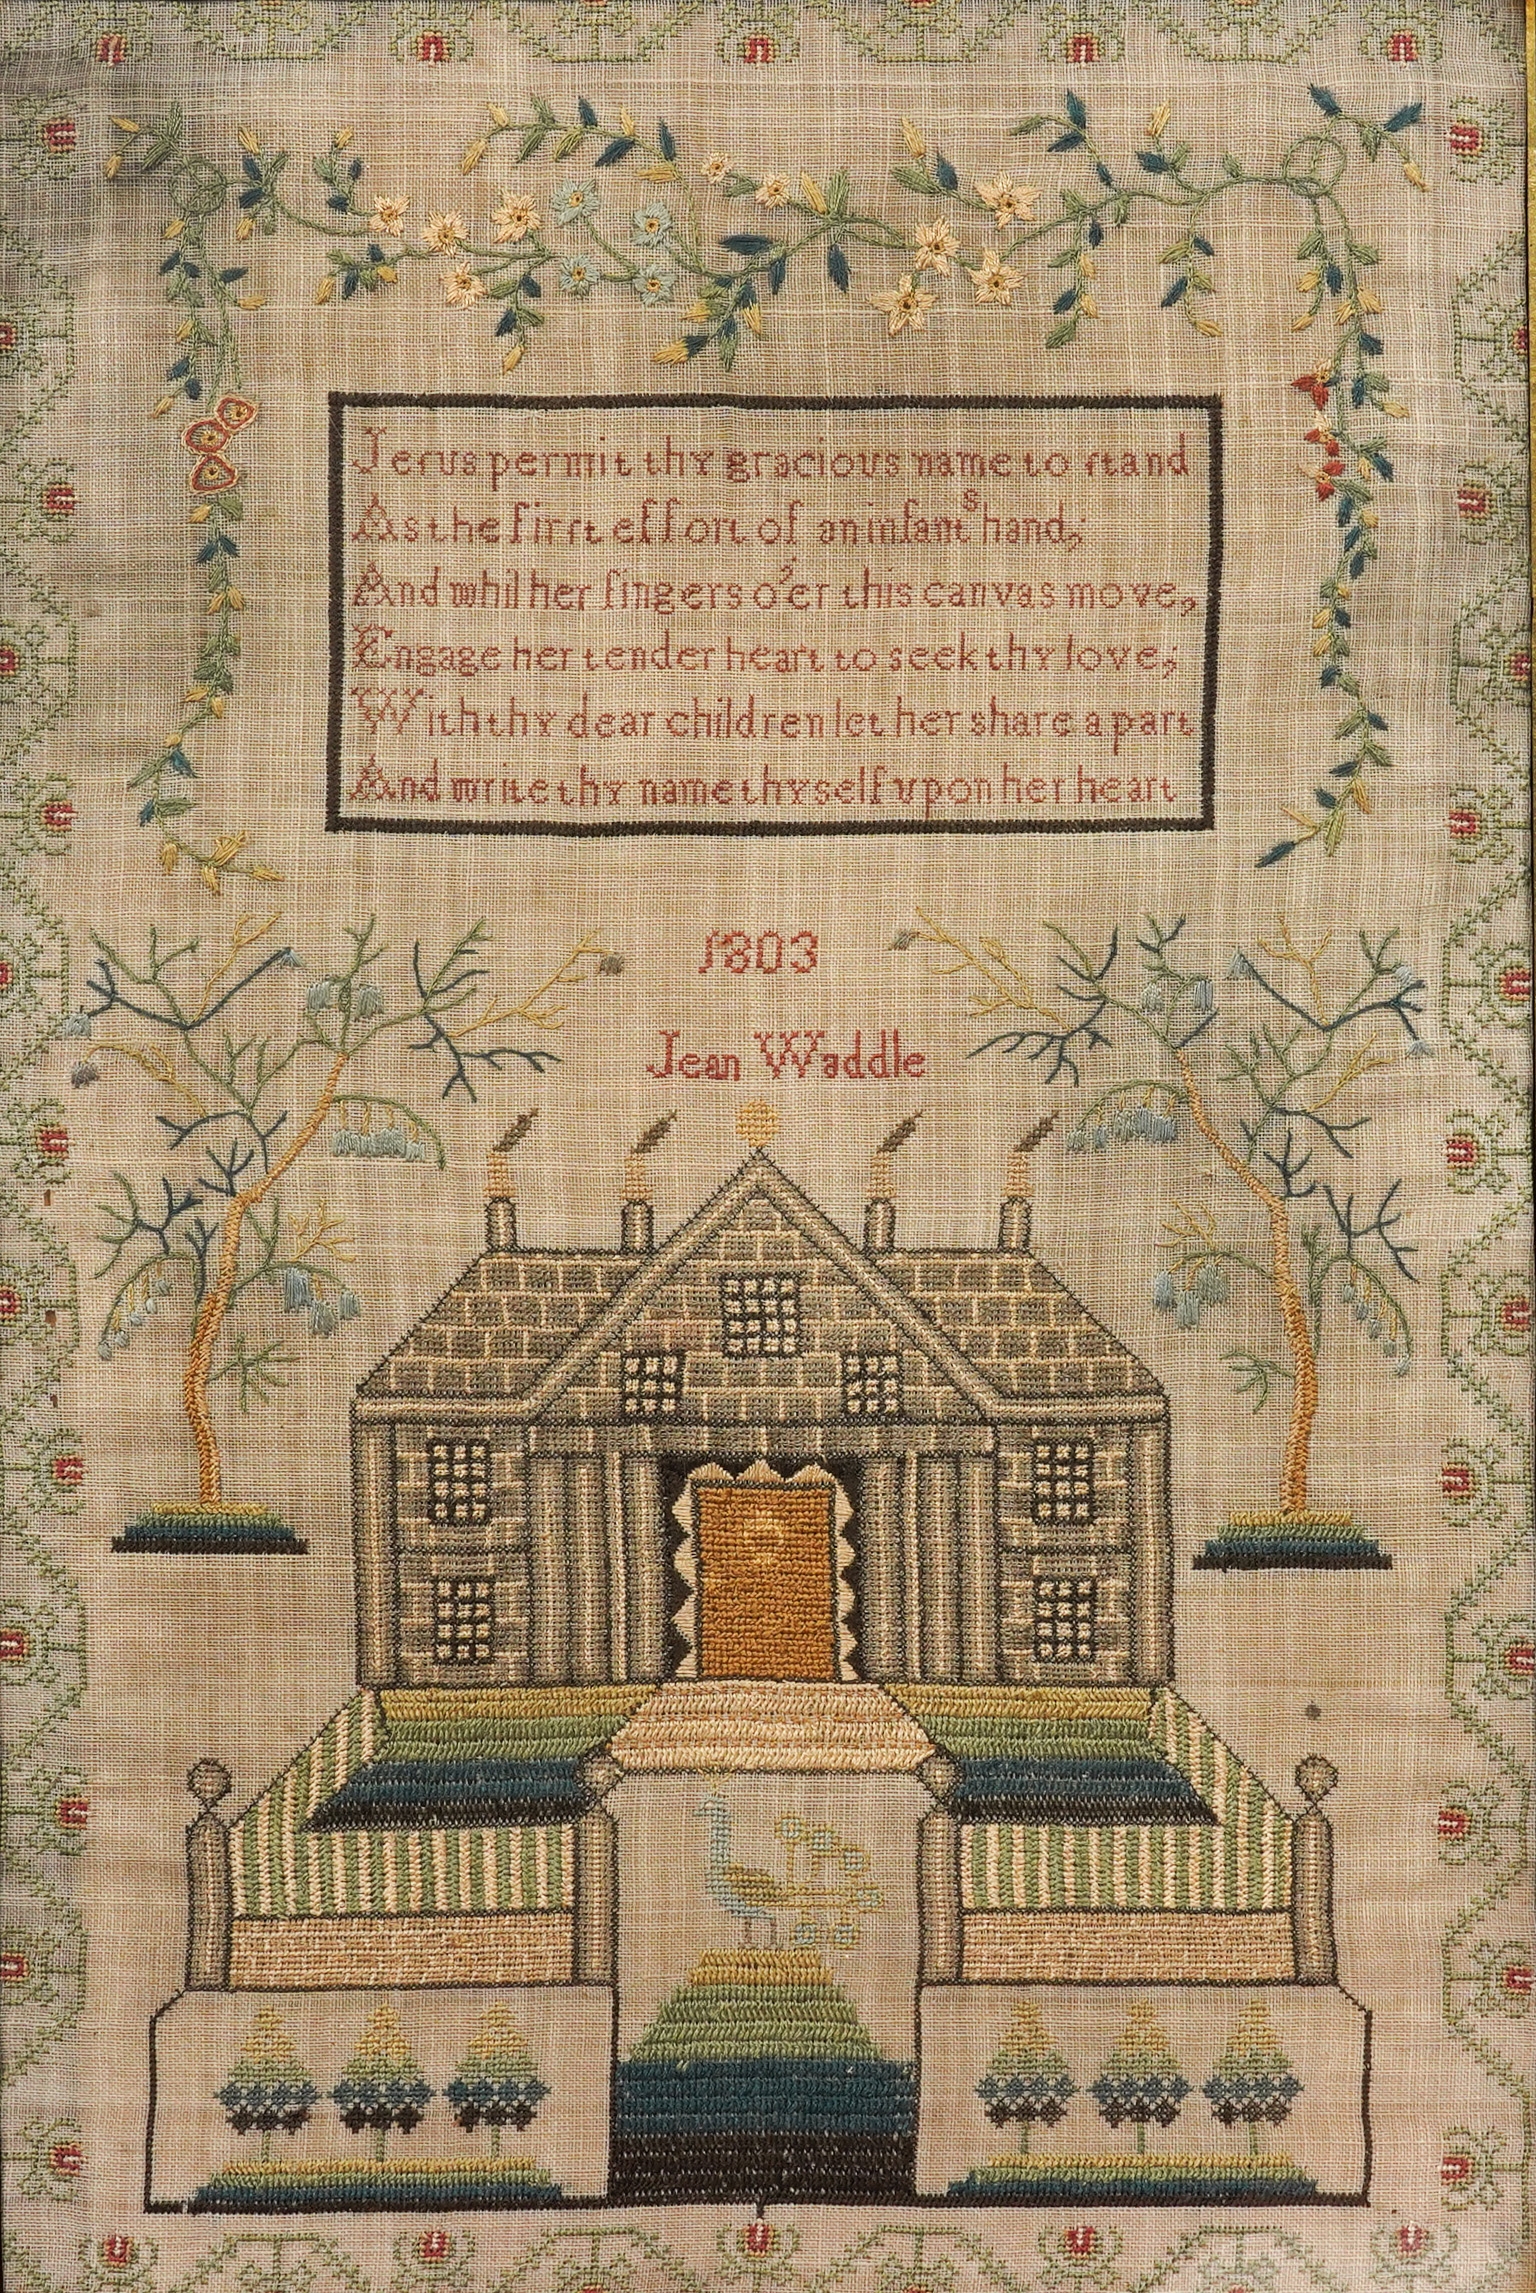 Jeſus permit thy gracious name to ſtand
As the firſt effort of an infantˢ hand;
And whil her fingers o'er this canvas move,
Engage her tender heart to seek thy love;
With thy dear children let her share a part
And write thy name thyself vpon her heart
1803
Jean Waddle